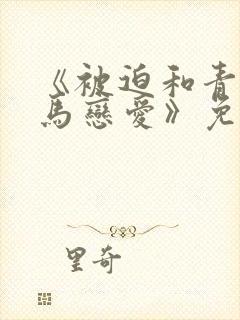 《被迫和青
馬戀愛》免
里奇